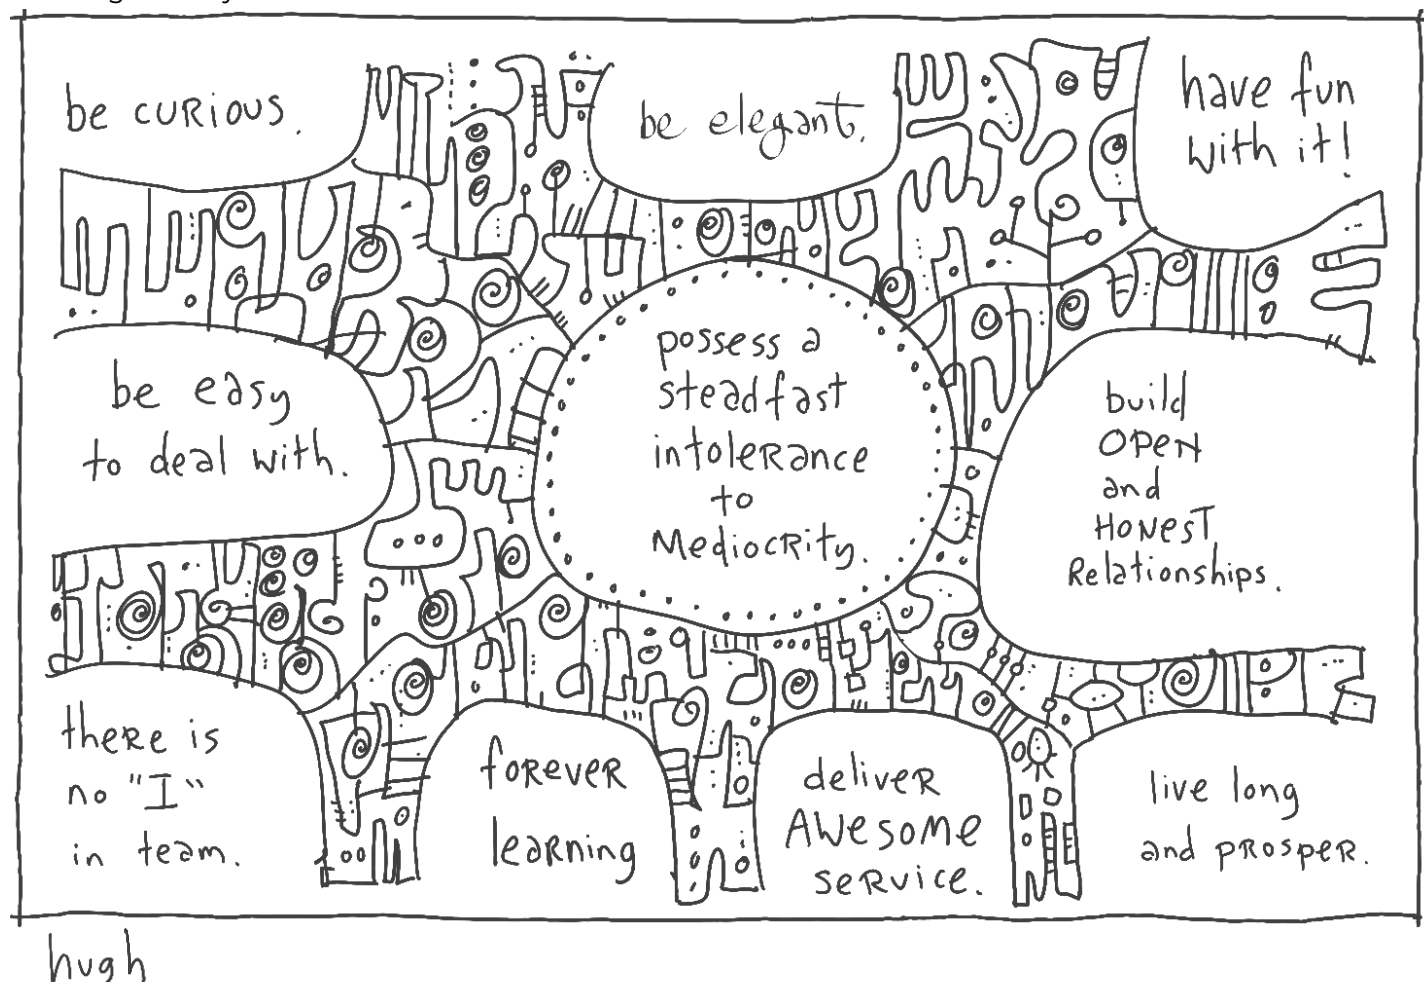 be curious.
be elegant.
have fun
with it!
be easy
to deal with.
possess a
steadfast
intolerance
to
Mediocrity.
build
OPEN
and
HONEST
Relationships.
there is
no "I"
in team.
forever
learning
deliver
AWESOME
service.
live long
and prosper.
hugh